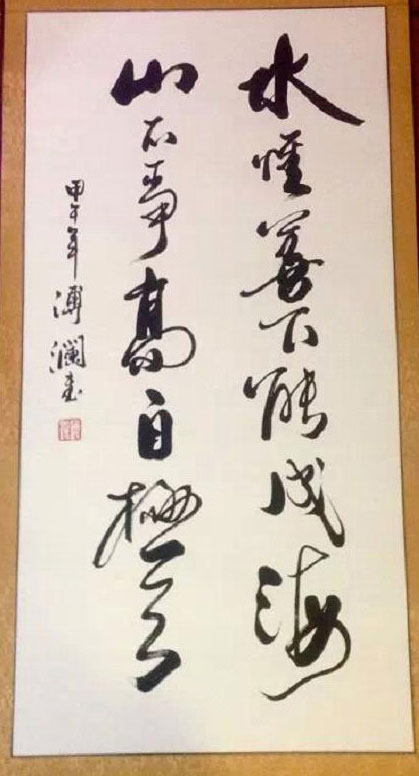 水唯善下能成海
山不争高自極天
甲午年 溥瀾書